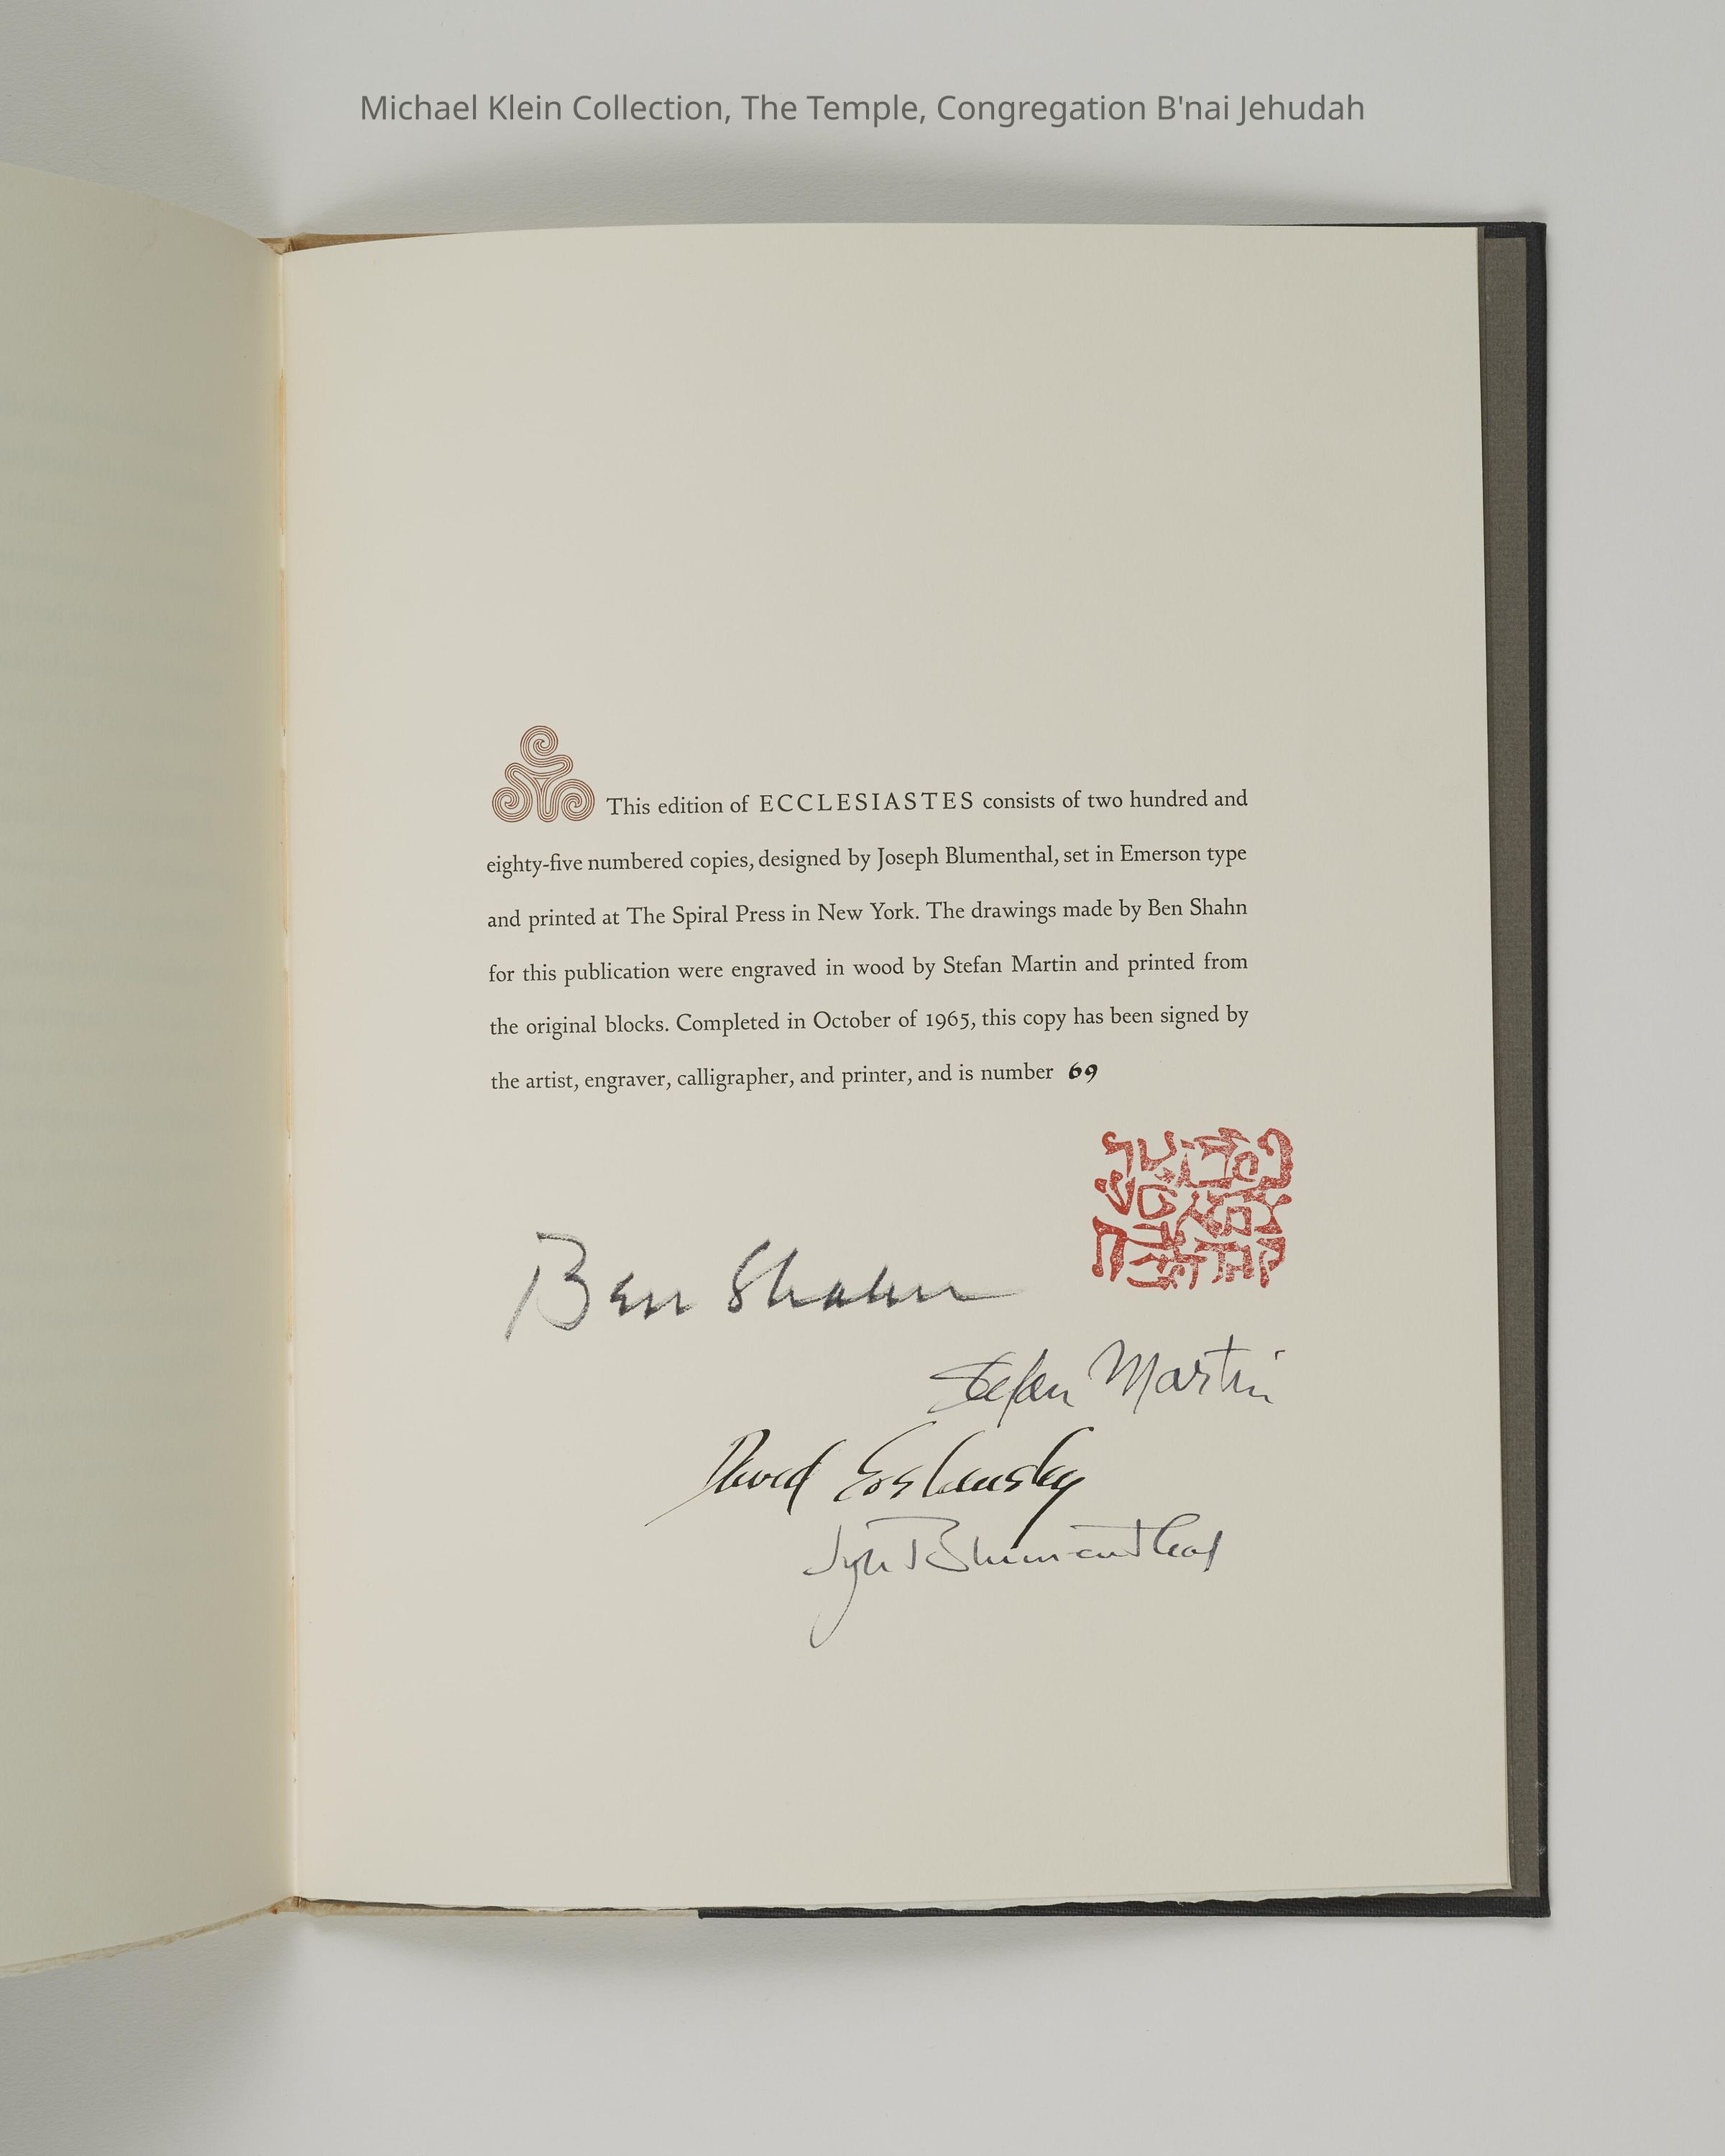 Michael Klein Collection, The Temple, Congregation B'nai Jehudah
This edition of ECCLESIASTES consists of two hundred and
eighty-five numbered copies, designed by Joseph Blumenthal, set in Emerson type
and printed at The Spiral Press in New York. The drawings made by Ben Shahn
for this publication were engraved in wood by Stefan Martin and printed from
the original blocks. Completed in October of 1965, this copy has been signed by
the artist, engraver, calligrapher, and printer, and is number 69
Ben Shahn
Stefan Martin
David Soshensky
Blumenthal